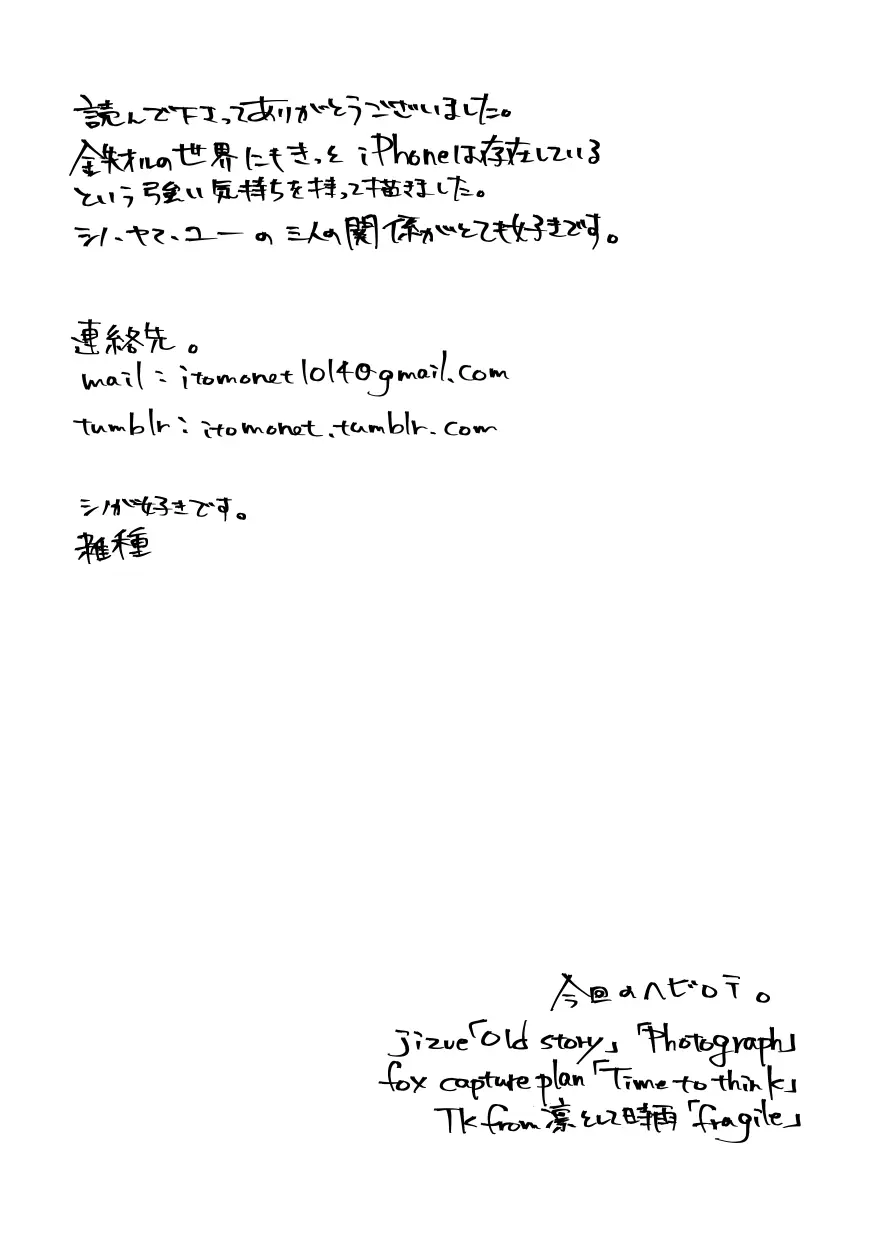 読んで下さってありがとうございました。
鉄オルの世界にもきっと iPhoneは存在している
という強い気持ちを持って描きました。
シノ、ヤマ、ユーの三人の関係がとても好きです。
連絡先。
mail : itomonet1014@gmail.com
tumblr : itomonet.tumblr.com
シノが好きです。
雑種
今回のヘビロテ。
jizue「Old story」「Photograph」
fox capture plan「Time to think」
TK from 凛として時雨「fragile」